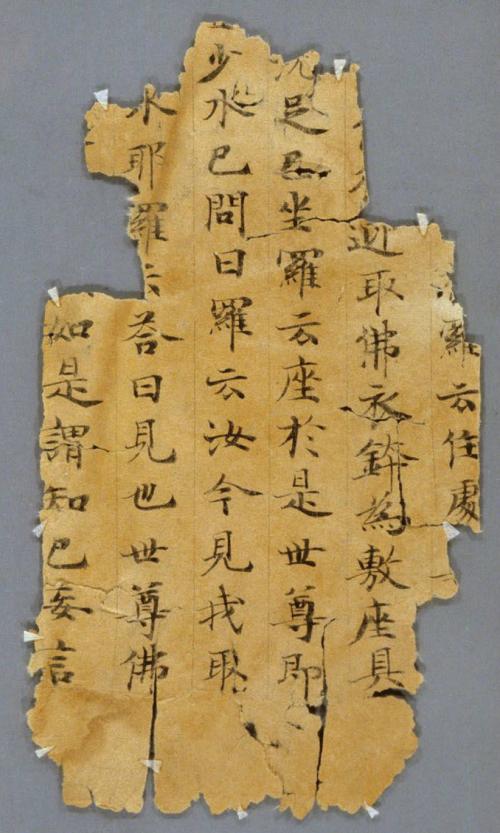 羅云住處
迎取佛衣鉢為敷座具
足已坐羅云座於是世尊即
少水已問曰羅云汝今見我取
水耶羅云荅曰見也世尊佛
如是謂知已妄言